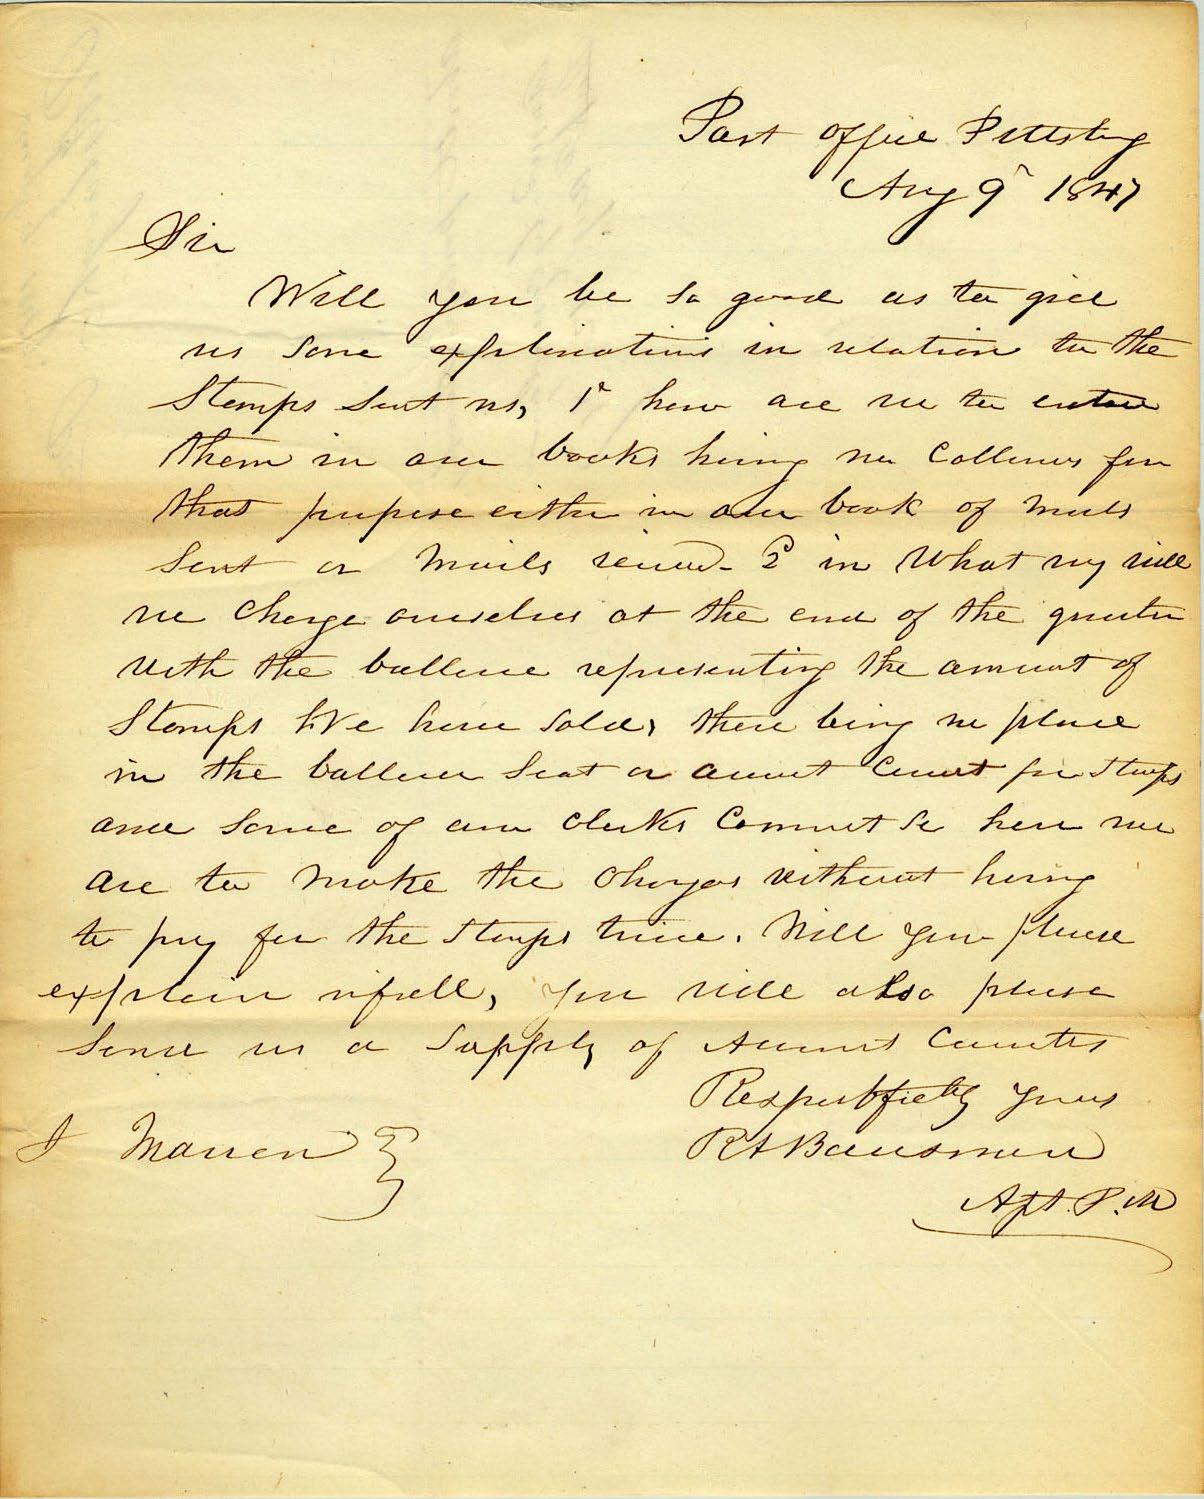 Post Office Pittsburg
Aug 9th 1847
Sir
Will you be so good as to give
us some explinations in relation to the
Stamps sent us, 1st how are we to enter
them in our books having no Collums for
that purpose either in our book of mails
Sent or Mails received. 2d in What way will
we Charge ourselves at the end of the quarter
with the ballence representing the amount of
Stamps We have sold, there being no place
in the ballence Seat or account Current for Stamps
and some of our Clerks Cannot se how we
are to make the Charges without having
to pay for the Stamps twice. Will you please
explain in full, you will also please
send us a supply of Account Currents
Respectfully yours
R A Bausman
Asst. P.M
J Marron